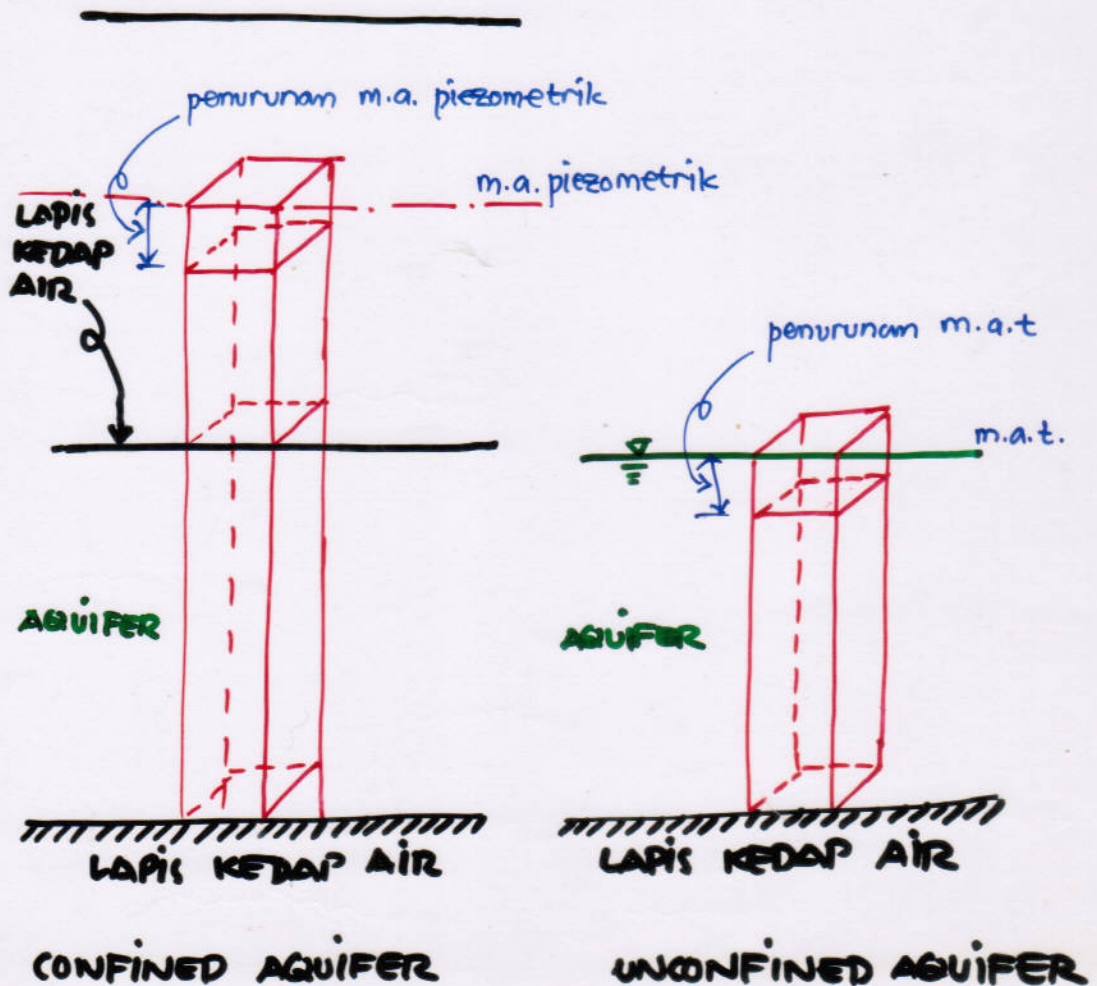 penurunan m.a. piezometrik
m.a. piezometrik
LAPIS
KEDAP
AIR
penurunan m.a.t
m.a.t.
AQUIFER
AQUIFER
LAPIS KEDAP AIR
LAPIS KEDAP AIR
CONFINED AQUIFER
UNCONFINED AQUIFER